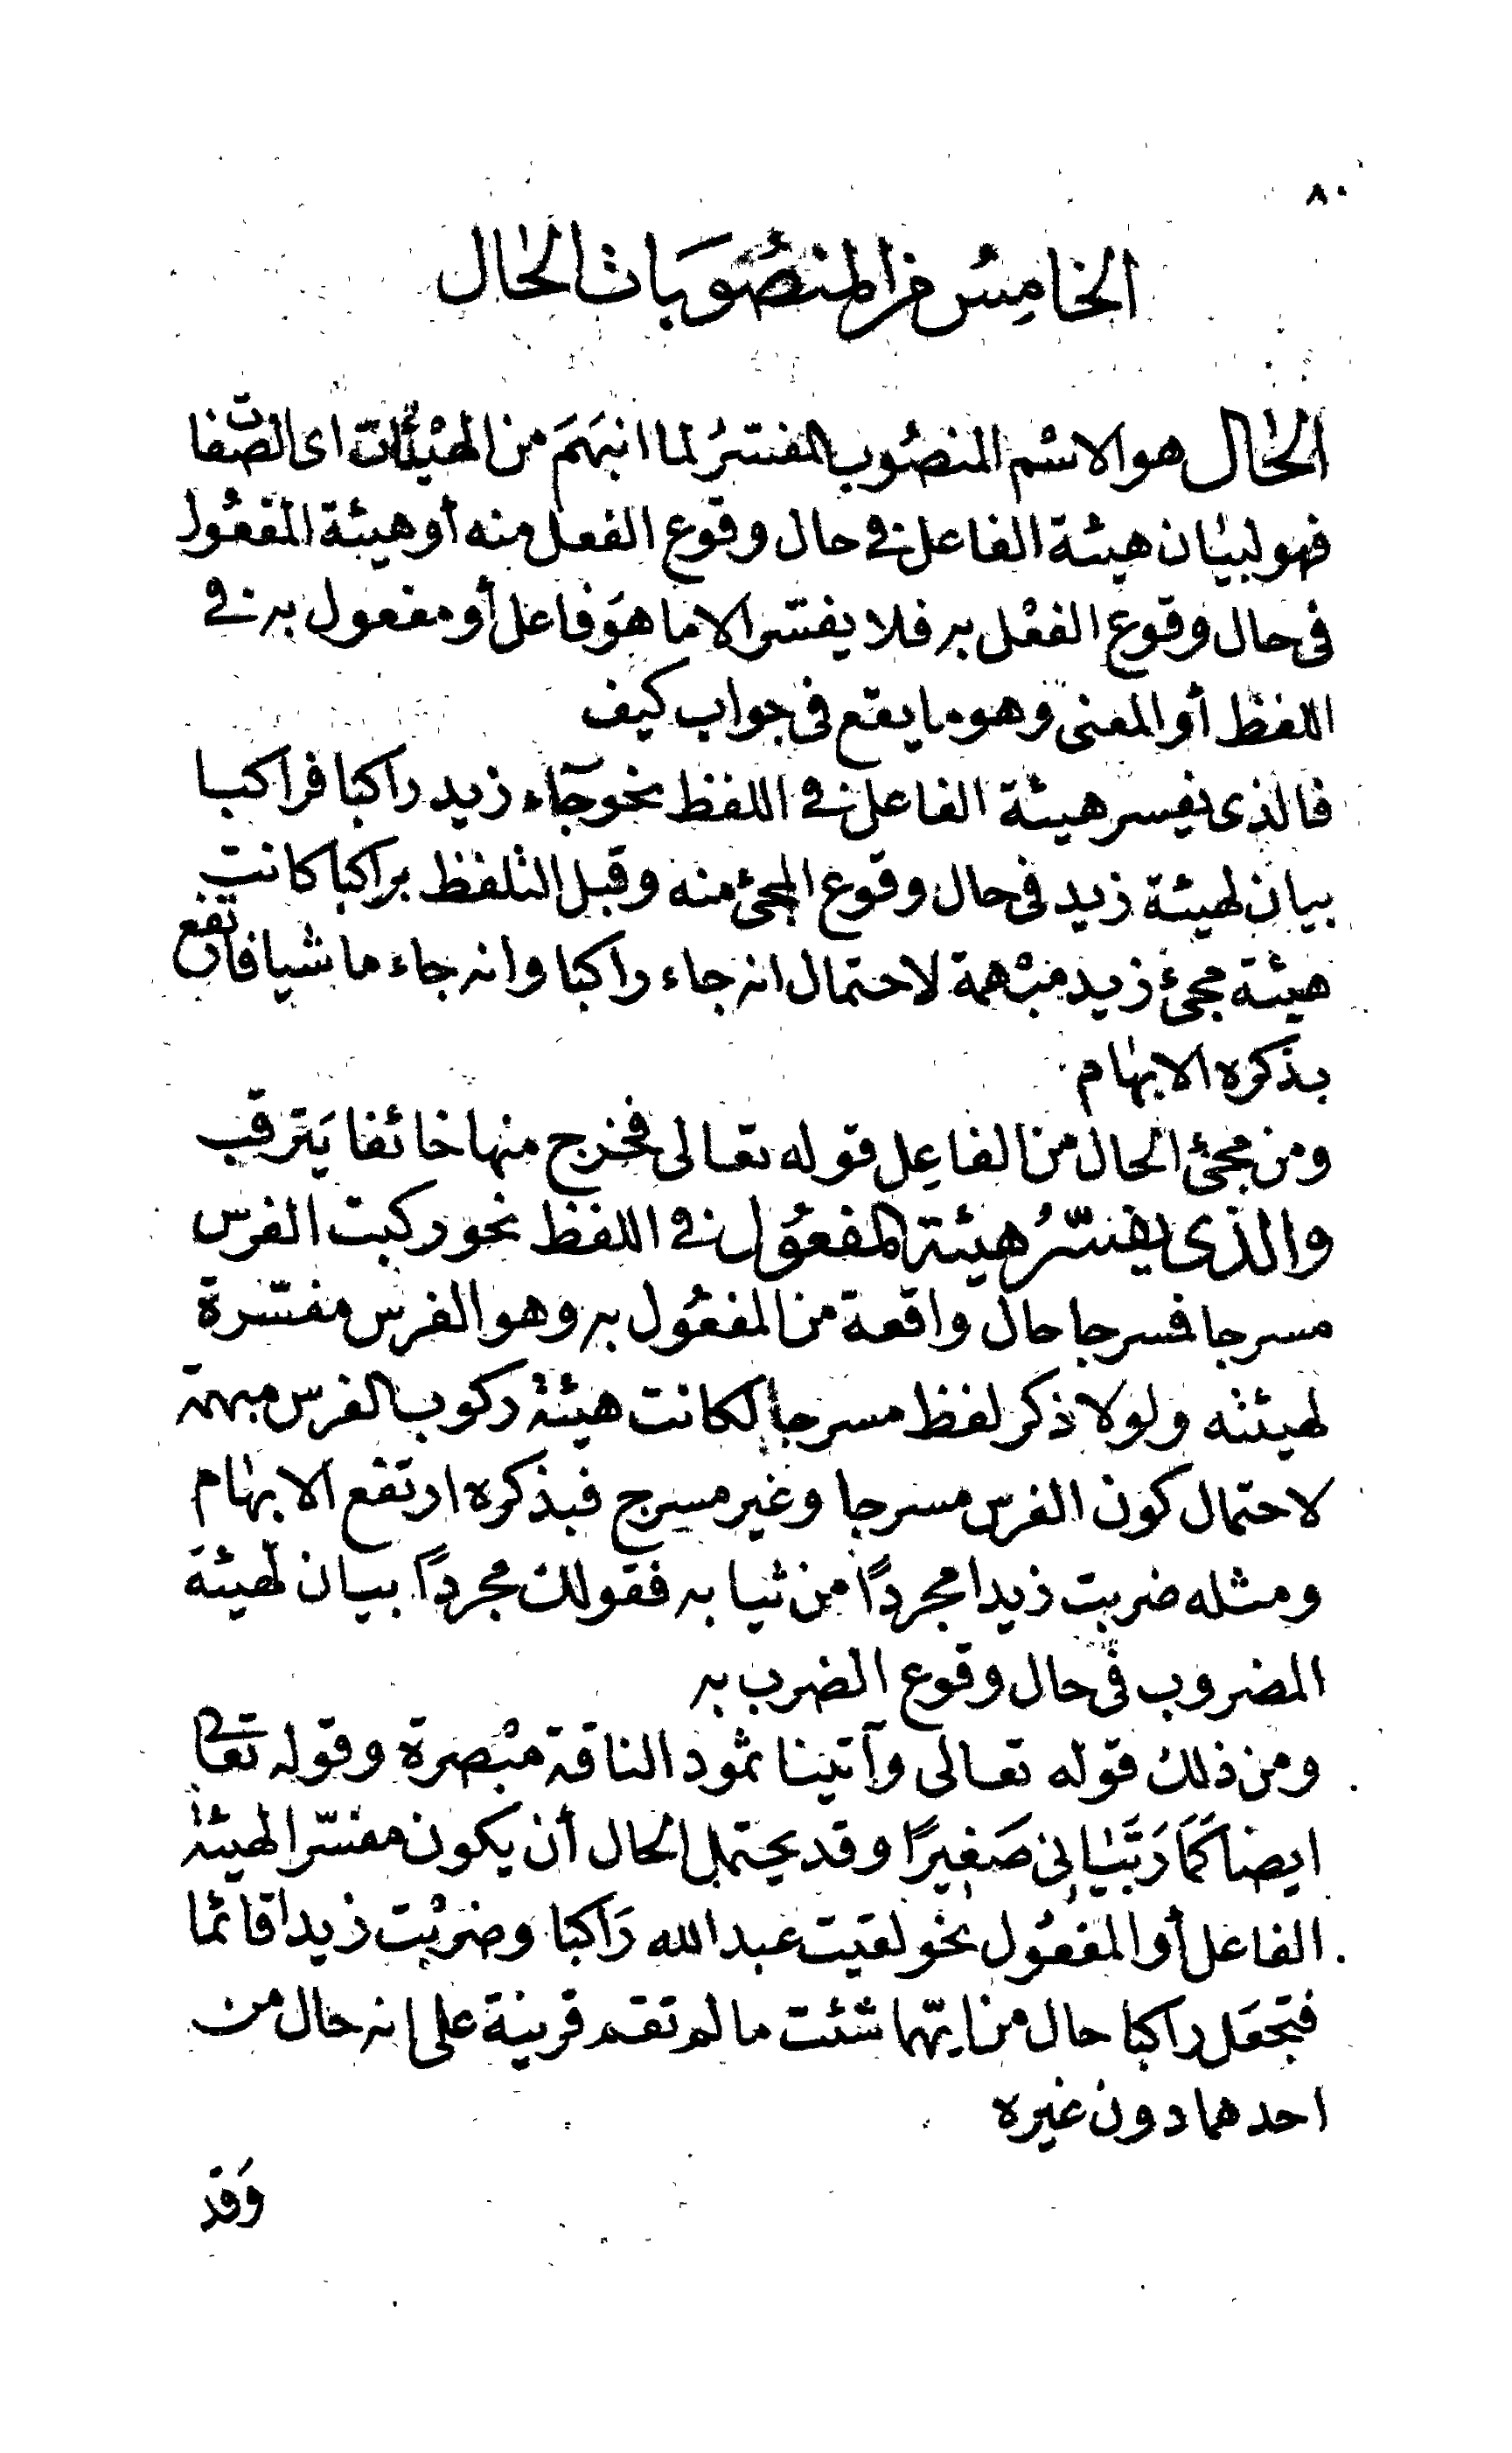 ٨٠
الخامِسُ من المنصُوَبات الحٰال
الحٰال هو الاسْم المنصُوب المفسّرُ لما انبَهَمَ من الهيْئٰات اى الصّفات
فهو لبيٰان هيئة الفاعل فى حال وقوع الفعل منه أو هيئة المفعُول
فى حال وقوع الفعْل به فلا يفسّر الا ما هوَ فاعل أو مفعول به فى
اللفظ أو المعنى وهو ما يقع فى جواب كيف
فالذى يفسر هيئة الفاعل فى اللفظ نحو جآء زيد راكبا فراكبا
بيان لهيئة زيد فى حال وقوع المجئ منه وقبل التلفظ براكبا كانت
هيئة مجئ زيد مبْهمة لاحتمال انه جاء راكبا وانه جاء ماشيا فارتفع
بذكره الابهٰام
ومن مجئ الحال من الفاعِل قوله تعالى فخرج منها خائفا يَترقب
والذى يفسّرُ هيئة المفعُول فى اللفظ نحو ركبت الفرس
مسرجا فمسرجا حال واقعة من المفعُول به وهو الفرس مفسّرة
لهيئته ولولا ذكر لفظ مسرجا لكانت هيئة ركوب الفرس مبهمة
لاحتمال كون الفرس مسرجا وغير مسرج فبذكره ارتفع الابهٰام
ومثله ضربت زيدا مجردًا من ثيابه فقولك مجردًا بيان لهيئة
المضروب فى حال وقوع الضرب به
ومن ذلك قوله تعالى وآتينا ثمود الناقة مبْصرة وقوله تعالى
ايضا كَمَا رَبَّيٰانِى صَغيرًا وقد يحتمل الحال أن يكون مفسّرا لهيئة
الفاعل أو المفعُول نحو لقيت عبد الله رَاكبا وضربْت زيدا قائما
فتجعَل راكبا حال من ايّهما شئت ما لم تقم قرينة على انه حال من
احدهما دون غيره
وَقد